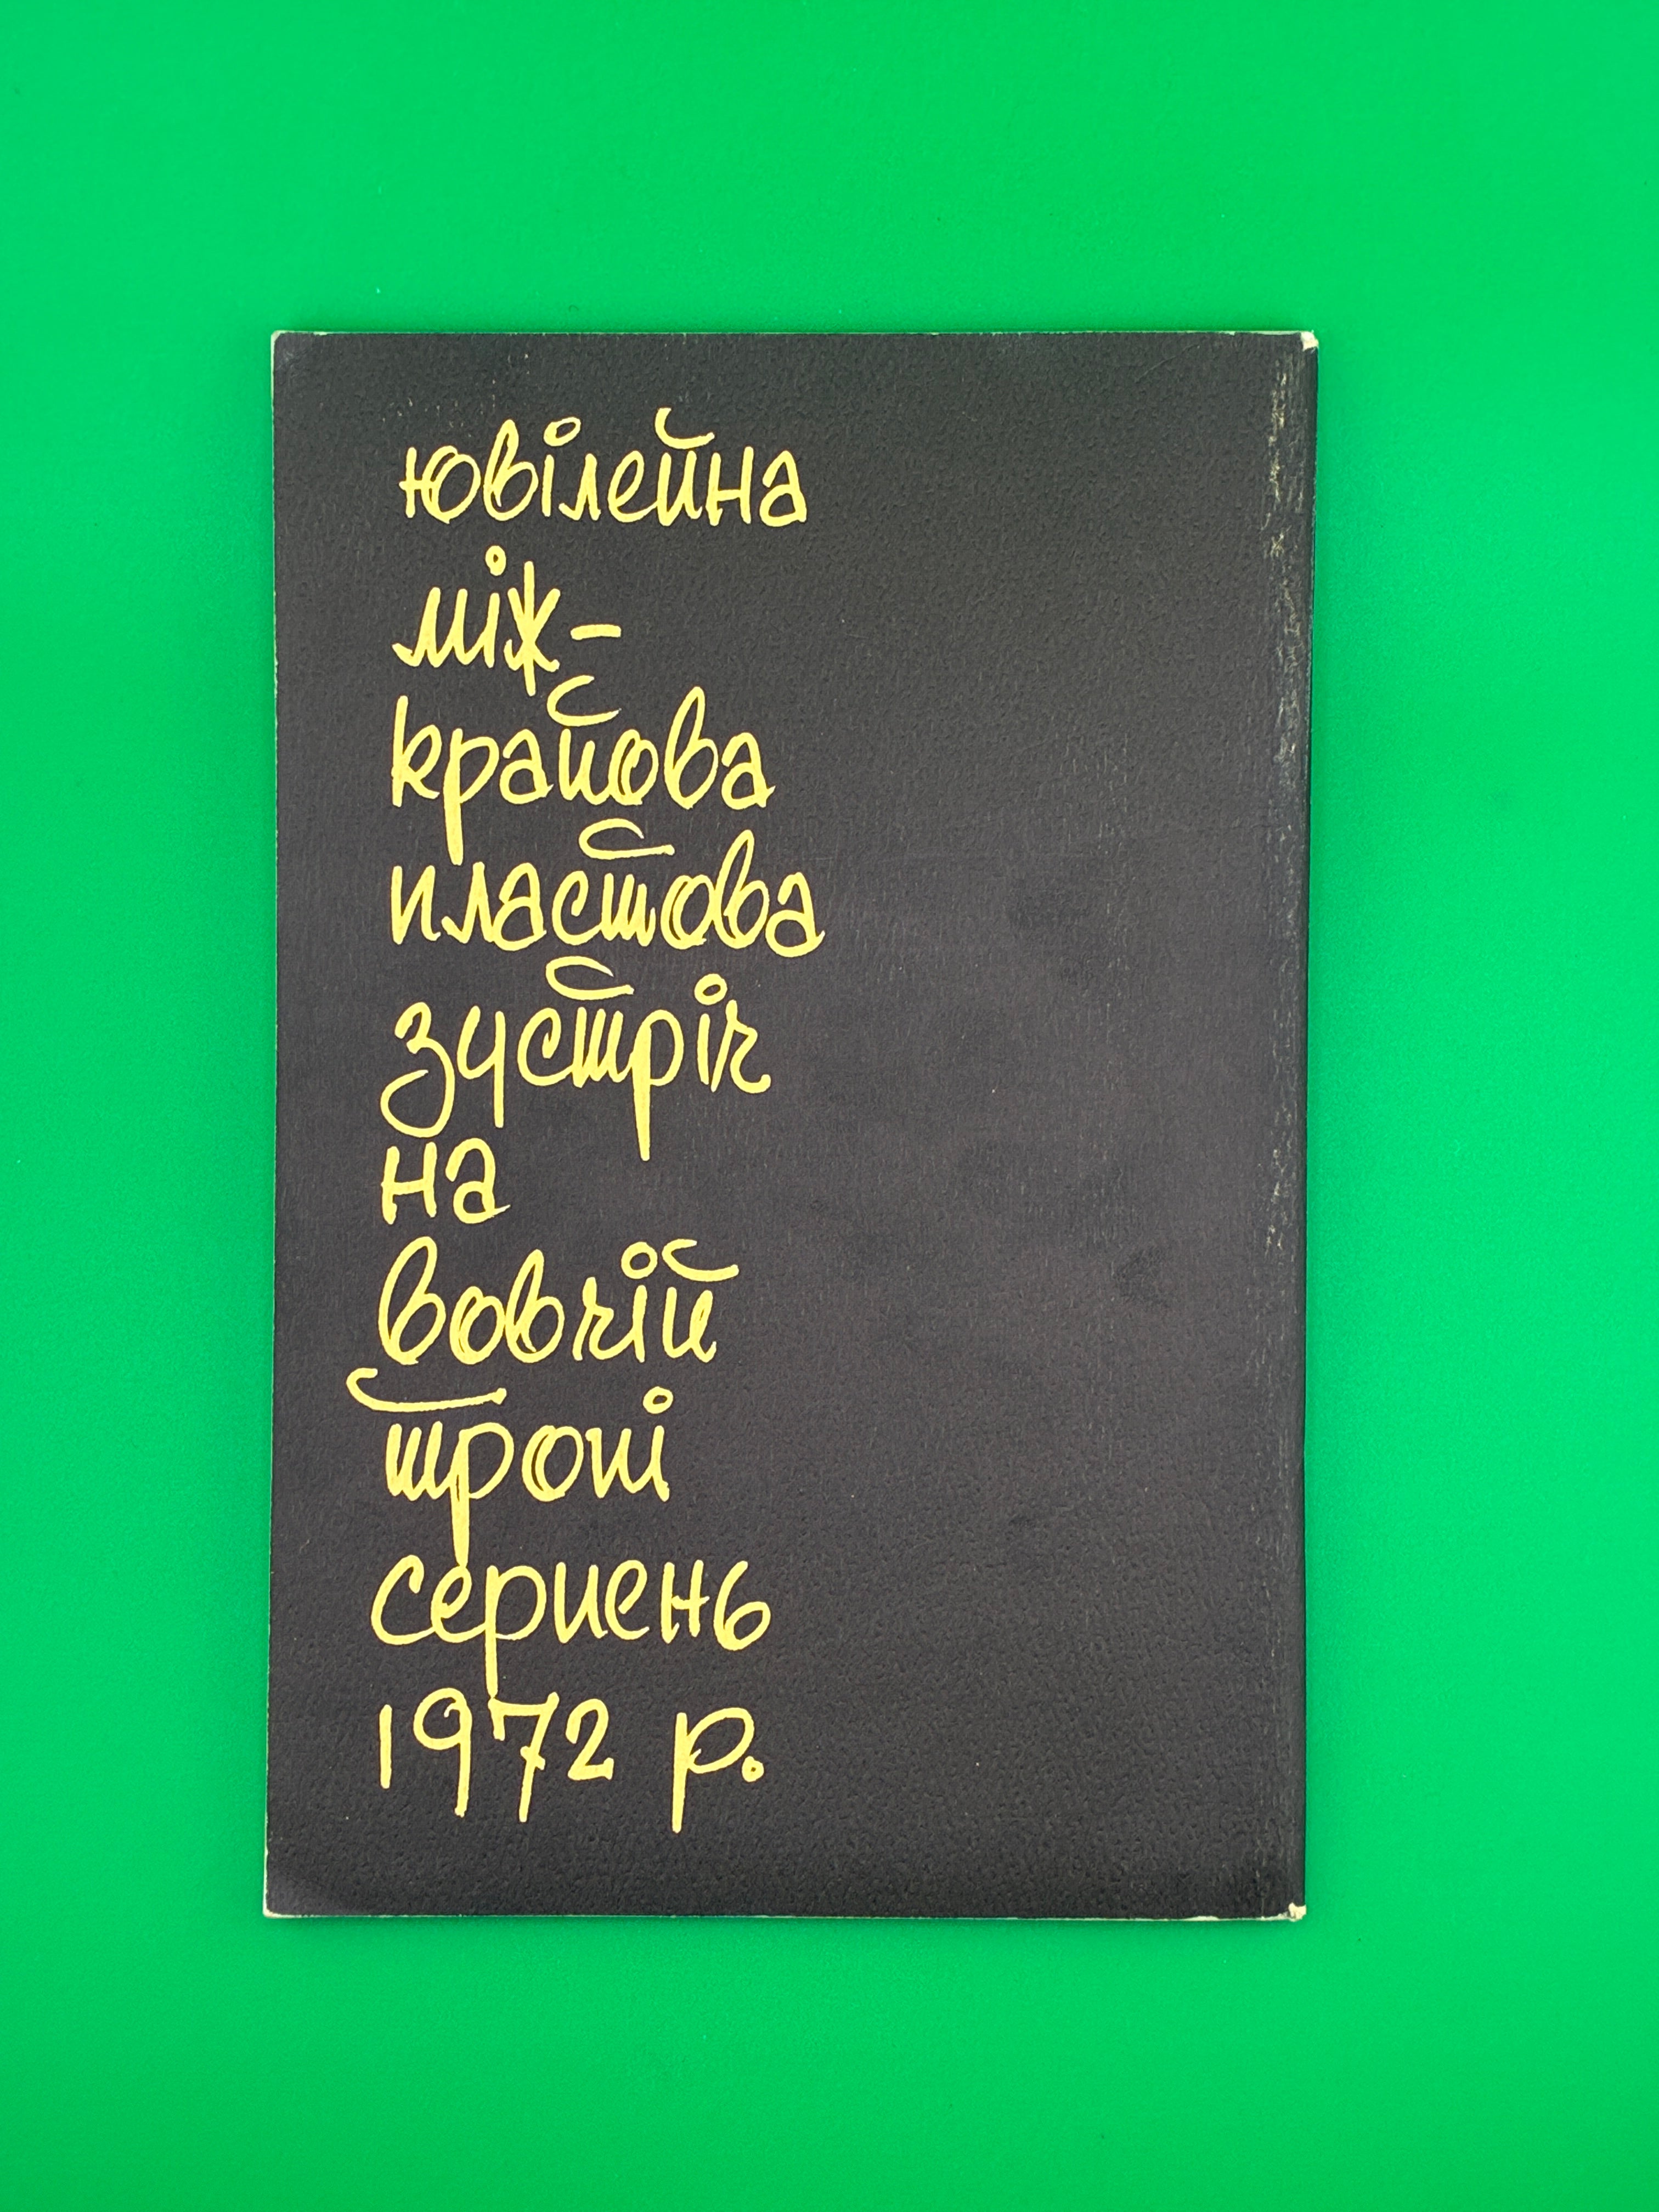 ювілейна
між-
крайова
пластова
зустріч
на
вовчій
тропі
серпень
1972 р.